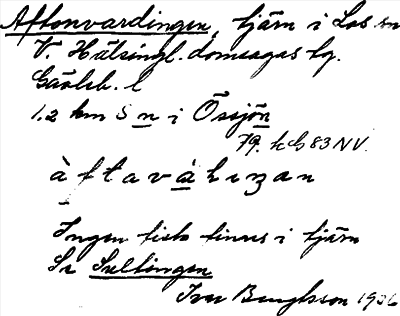 Aftonvardingen, tjärn i Los sn
V. Hälsingl. domsagas tg.
Gävleb. l
1.2 km S n i Össjön
79. kbl 83 NV.
àftavàhızan
Ingen fisk finns i tjärn
Se Sveltingen
Ivar Bengtsson 1936